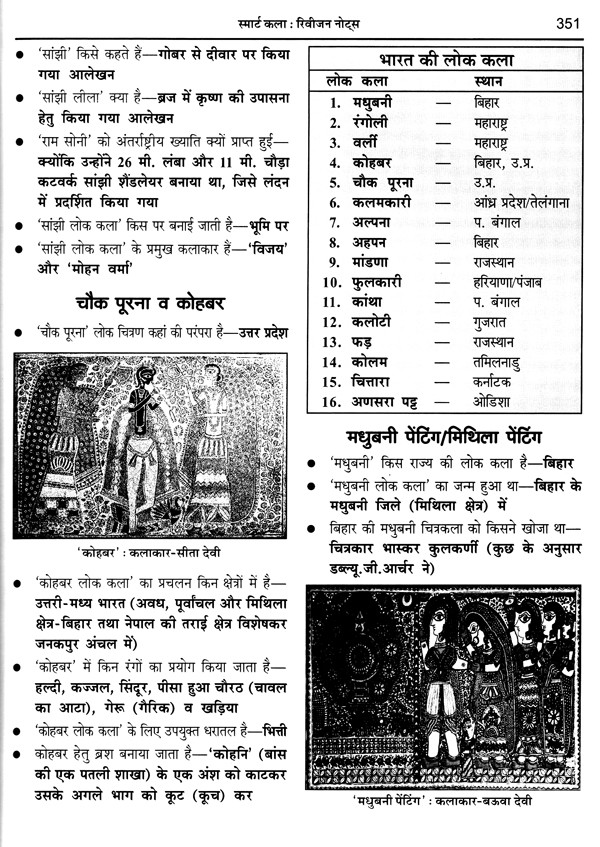 स्मार्ट कला : रिवीजन नोट्स
351
● ‘सांझी’ किसे कहते है—गोबर से दीवार पर किया
गया आलेखन
● ‘सांझी लीला’ क्या है—ब्रज में कृष्ण की उपासना
हेतु किया गया आलेखन
● ‘राम सोनी’ को अंतर्राष्ट्रीय ख्याति क्यों प्राप्त हुई—
क्योंकि उन्होंने 26 मी. लंबा और 11 मी. चौड़ा
कटवर्क सांझी शैंडलेयर बनाया था, जिसे लंदन
में प्रदर्शित किया गया
● ‘सांझी लोक कला’ किस पर बनाई जाती है—भूमि पर
● ‘सांझी लोक कला’ के प्रमुख कलाकार हैं—‘विजय’
और ‘मोहन वर्मा’
चौक पूरना व कोहबर
● ‘चौक पूरना’ लोक चित्रण कहां की परंपरा है—उत्तर प्रदेश
‘कोहबर’ : कलाकार-सीता देवी
● ‘कोहबर लोक कला’ का प्रचलन किन क्षेत्रों में है—
उत्तरी-मध्य भारत (अवध, पूर्वांचल और मिथिला
क्षेत्र-बिहार तथा नेपाल की तराई क्षेत्र विशेषकर
जनकपुर अंचल में)
● ‘कोहबर’ में किन रंगों का प्रयोग किया जाता है—
हल्दी, कज्जल, सिंदूर, पीसा हुआ चौरठ (चावल
का आटा), गेरू (गैरिक) व खड़िया
● ‘कोहबर लोक कला’ के लिए उपयुक्त धरातल है—भित्ती
● कोहबर हेतु ब्रश बनाया जाता है—‘कोहनि’ (बांस
की एक पतली शाखा) के एक अंश को काटकर
उसके अगले भाग को कूट (कूच) कर
भारत की लोक कला
लोक कला स्थान
1. मधुबनी — बिहार
2. रंगोली — महाराष्ट्र
3. वर्ली — महाराष्ट्र
4. कोहबर — बिहार, उ.प्र.
5. चौक पूरना — उ.प्र.
6. कलमकारी — आंध्र प्रदेश/तेलंगाना
7. अल्पना — प. बंगाल
8. अहपन — बिहार
9. मांडणा — राजस्थान
10. फुलकारी — हरियाणा/पंजाब
11. कांथा — प. बंगाल
12. कलोटी — गुजरात
13. फड़ — राजस्थान
14. कोलम — तमिलनाडु
15. चित्तारा — कर्नाटक
16. अणसरा पट्ट — ओडिशा
मधुबनी पेंटिंग/मिथिला पेंटिंग
● ‘मधुबनी’ किस राज्य की लोक कला है—बिहार
● ‘मधुबनी लोक कला’ का जन्म हुआ था—बिहार के
मधुबनी जिले (मिथिला क्षेत्र) में
● बिहार की मधुबनी चित्रकला को किसने खोजा था—
चित्रकार भास्कर कुलकर्णी (कुछ के अनुसार
डब्ल्यू.जी.आर्चर ने)
‘मधुबनी पेंटिंग’ : कलाकार-बऊवा देवी